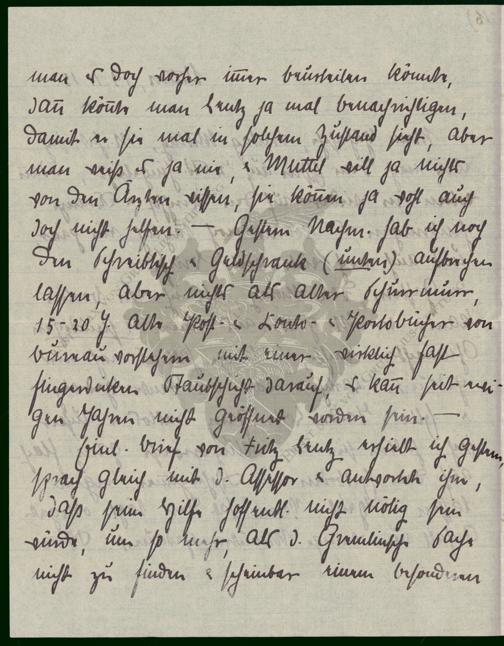 man es doch vorher immer beurteilen könnte,
dann könnte man Lentz ja mal benachrichtigen,
damit er sie mal in solchem Zustand sieht, aber
man weiß es ja nie, & Muttel will ja nichts
von den Ärzten wissen, sie können ja wohl auch
doch nicht helfen. — Gestern Nachm. hab ich noch
den Schreibtisch & Geldschrank (unten) aufbrechen
lassen aber nichts als alter Schurrmurr,
15-20 J. alte Post- & Konto- & Portobücher von
bureauvorstehern mit einer wirklich fast
fingerdicken Staubschicht darauf, & kann seit ewi-
gen Jahren nicht geöffnet worden sein. —
Einl. Brief von Fritz Lentz erhielt ich gestern,
sprach gleich mit d. Assessor & antwortete ihm,
daß seine Hilfe hoffentl. nicht nötig sein
würde, um so mehr, als d. Sache
nicht zu finden & scheinbar einem besonderen